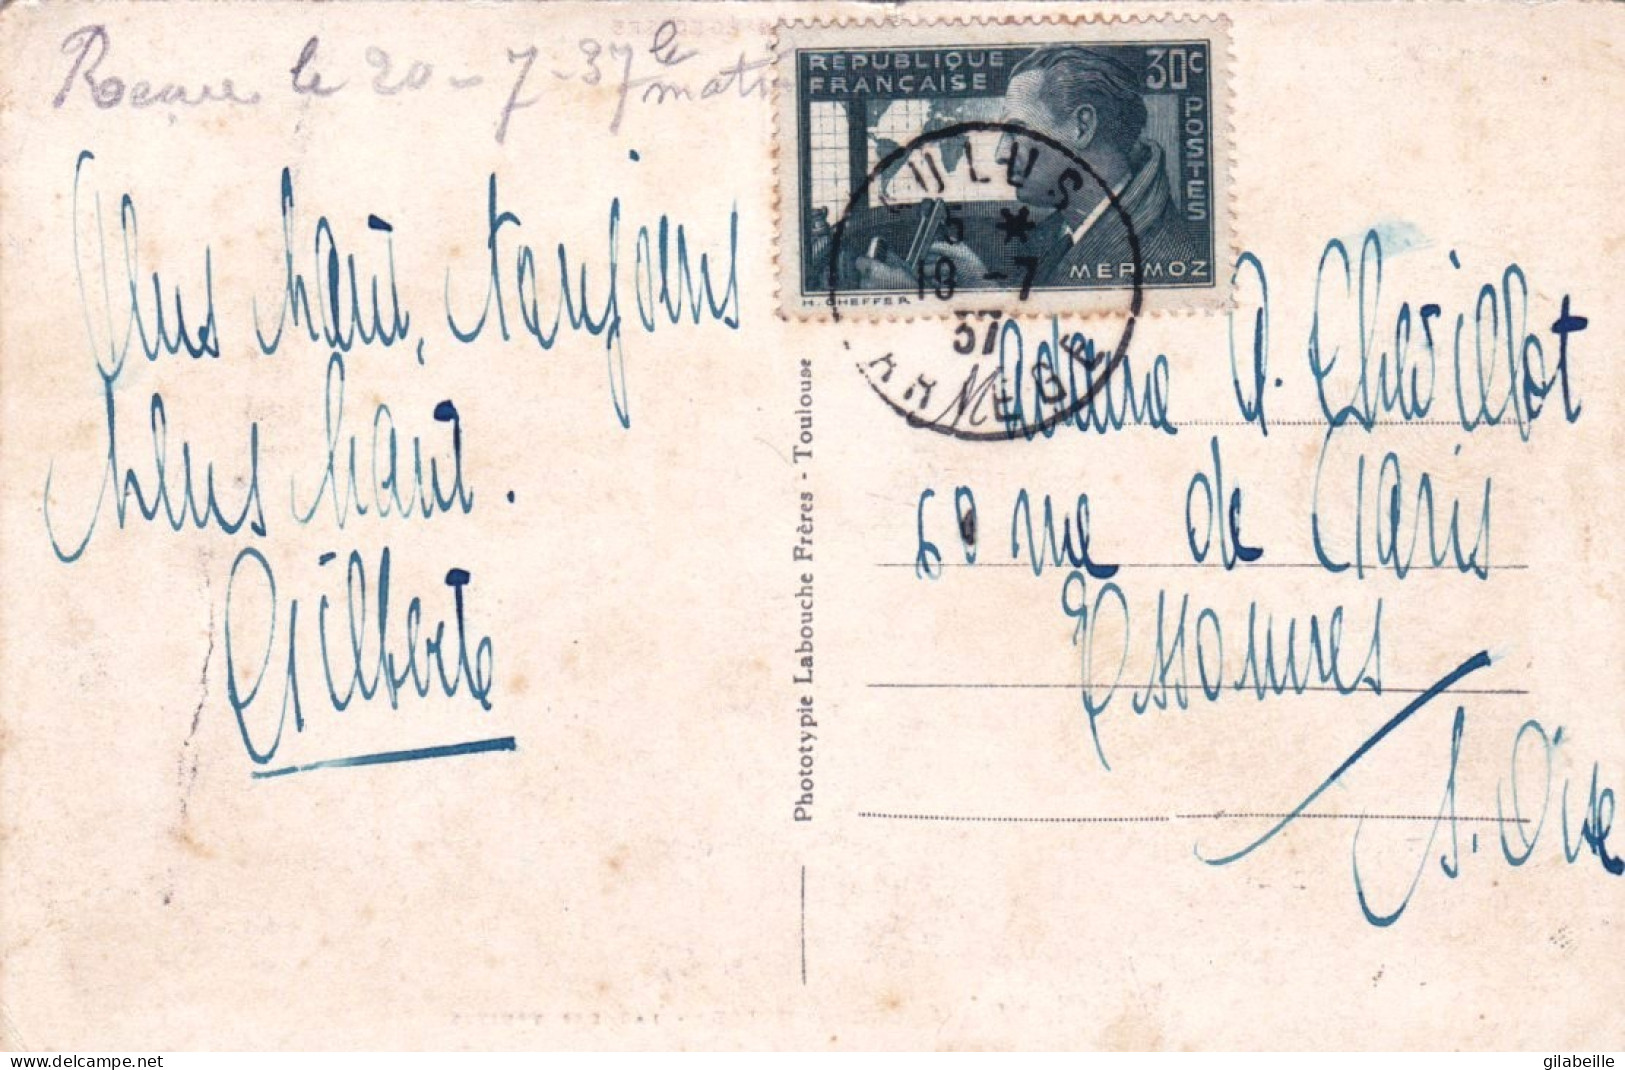 Reçue le 20-7-37 le
matin
Plus haut, toujours
plus haut.
Gilberte
RÉPUBLIQUE
FRANÇAISE
30c
POSTES
MERMOZ
H. CHEFFER
AULUS
5 *
18 -7
37
ARIEGE
Phototypie Labouche Frères - Toulouse
Madame P. Chevillot
60 rue de Paris
Essonnes
S. Oise
delcampe.net
gilabeille